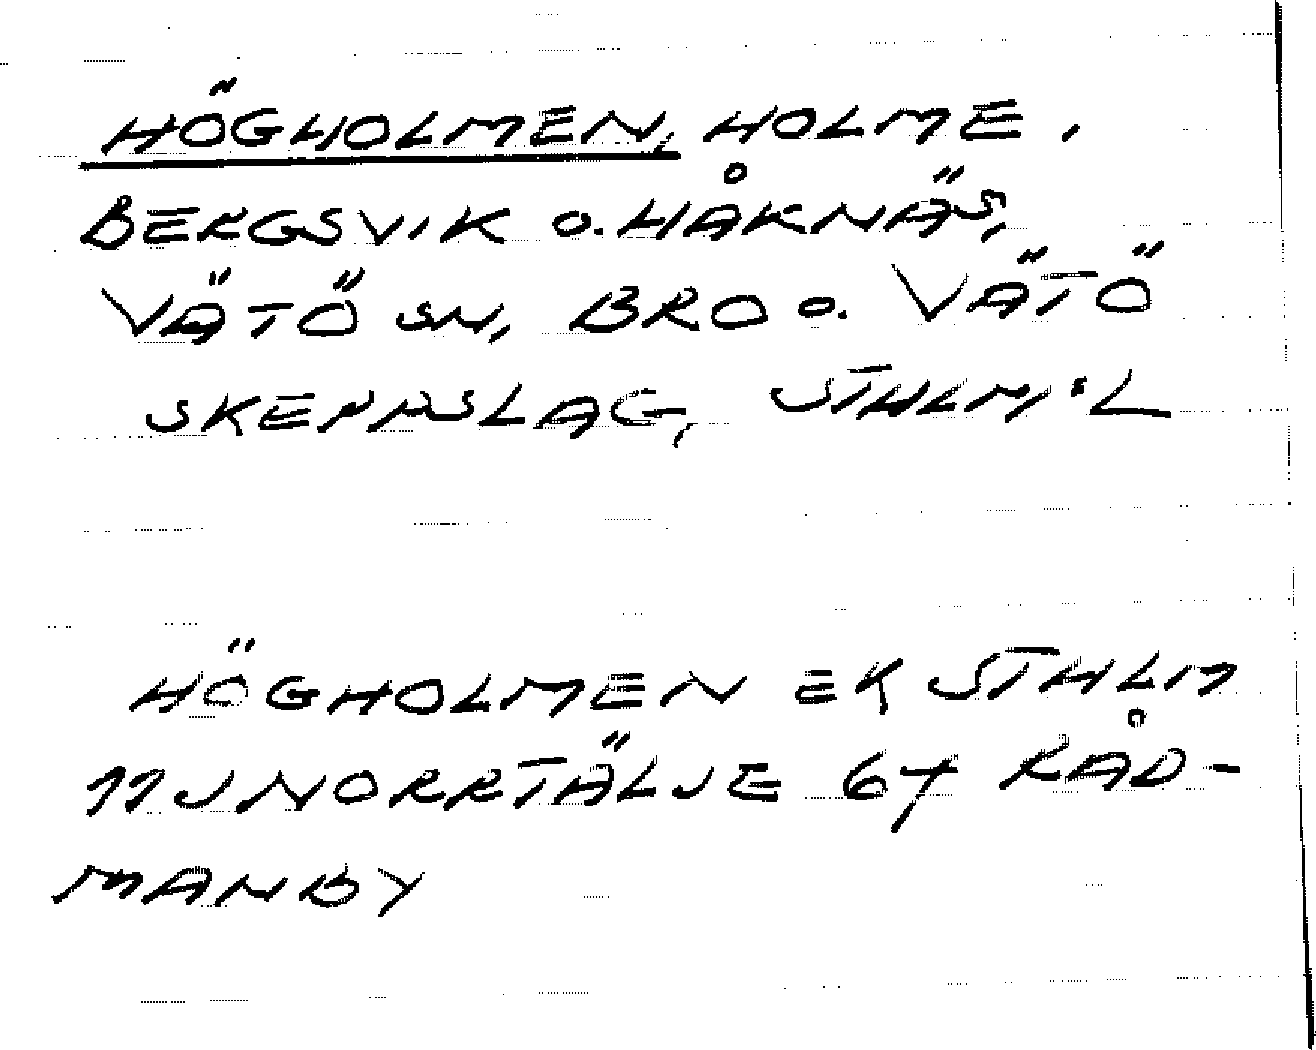 HÖGHOLMEN, HOLME.
BERGSVIK o. HÅKNÄS,
VÄTÖ SN, BRO o. VÄTÖ
SKEPPSLAG, STHLM:L
HÖGHOLMEN EK STHLM
11J NORRTÄLJE 64 RÅD-
MANBY